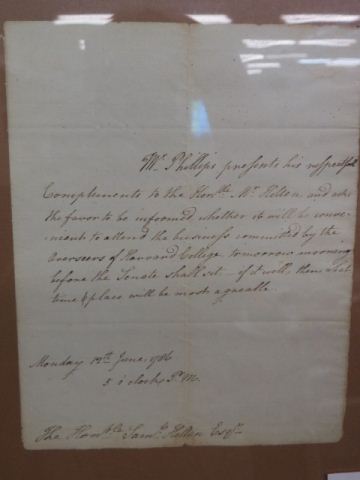 Mr. Phillips presents his respectful
Compliments to the Honble. Mr. Holten and asks
the favor to be informed whether it will be conve-
nient to attend the business committed by the
Overseers of Harvard College tomorrow morning
before the Senate shall sit if it will, then what
time & place will be most agreable.
Monday 12th June, 1786
5 o'clock P.M.
The Honble. Saml. Holten Esqr.